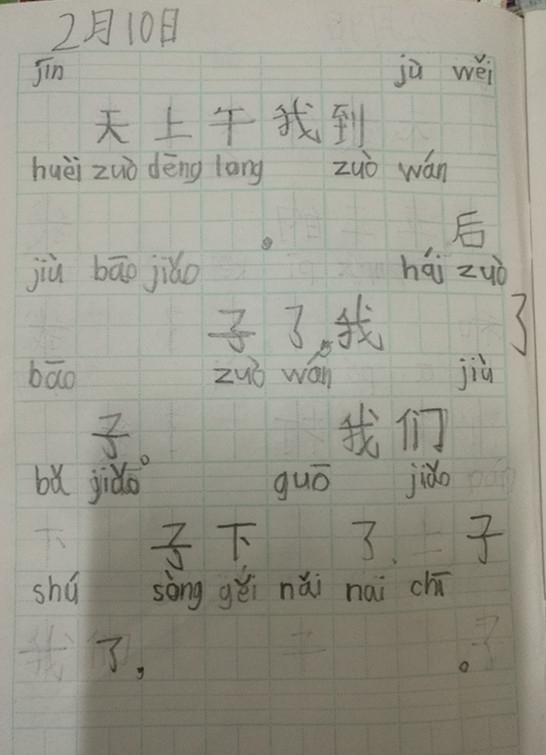 2月10日
jīn jù wěi
天上午我到
huèi zuò dēng long zuò wán
。后
jiù bāo jiǎo hái zuò
子了,我了
bāo zuò wán jiù
子。我们
bǎ jiǎo guō jiǎo
子下了、子
shú sòng gěi nǎi nai chī
了,。